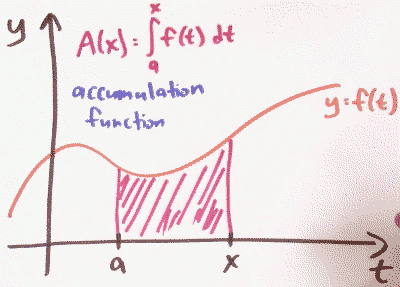 y
A(x) = ∫ₐˣ f(t) dt
accumulation
function
y=f(t)
a
x
t